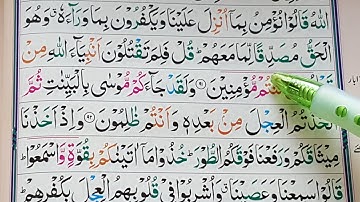 اللّٰهُ قَالُوْا نُؤْمِنُ بِمَآ اُنْزِلَ عَلَيْنَا وَيَكْفُرُوْنَ بِمَا وَرَآءَهٗ
الْحَقُّ مُصَدِّقًا لِّمَا مَعَهُمْ ؕ قُلْ فَلِمَ تَقْتُلُوْنَ اَنْۢبِيَآءَ اللّٰهِ مِنْ
كُنْتُمْ مُّؤْمِنِيْنَ ﴿۹۱﴾ وَلَقَدْ جَآءَكُمْ مُّوْسٰى بِالْبَيِّنٰتِ ثُمَّ
اتَّخَذْتُمُ الْعِجْلَ مِنْۢ بَعْدِهٖ وَاَنْتُمْ ظٰلِمُوْنَ ﴿۹۲﴾ وَاِذْ اَخَذْنَا
مِيْثَاقَكُمْ وَرَفَعْنَا فَوْقَكُمُ الطُّوْرَ ؕ خُذُوْا مَآ اٰتَيْنٰكُمْ بِقُوَّةٍ وَّاسْمَعُوْا ؕ
قَالُوْا سَمِعْنَا وَعَصَيْنَا ۗ وَاُشْرِبُوْا فِيْ قُلُوْبِهِمُ الْعِجْلَ بِكُفْرِهِمْ